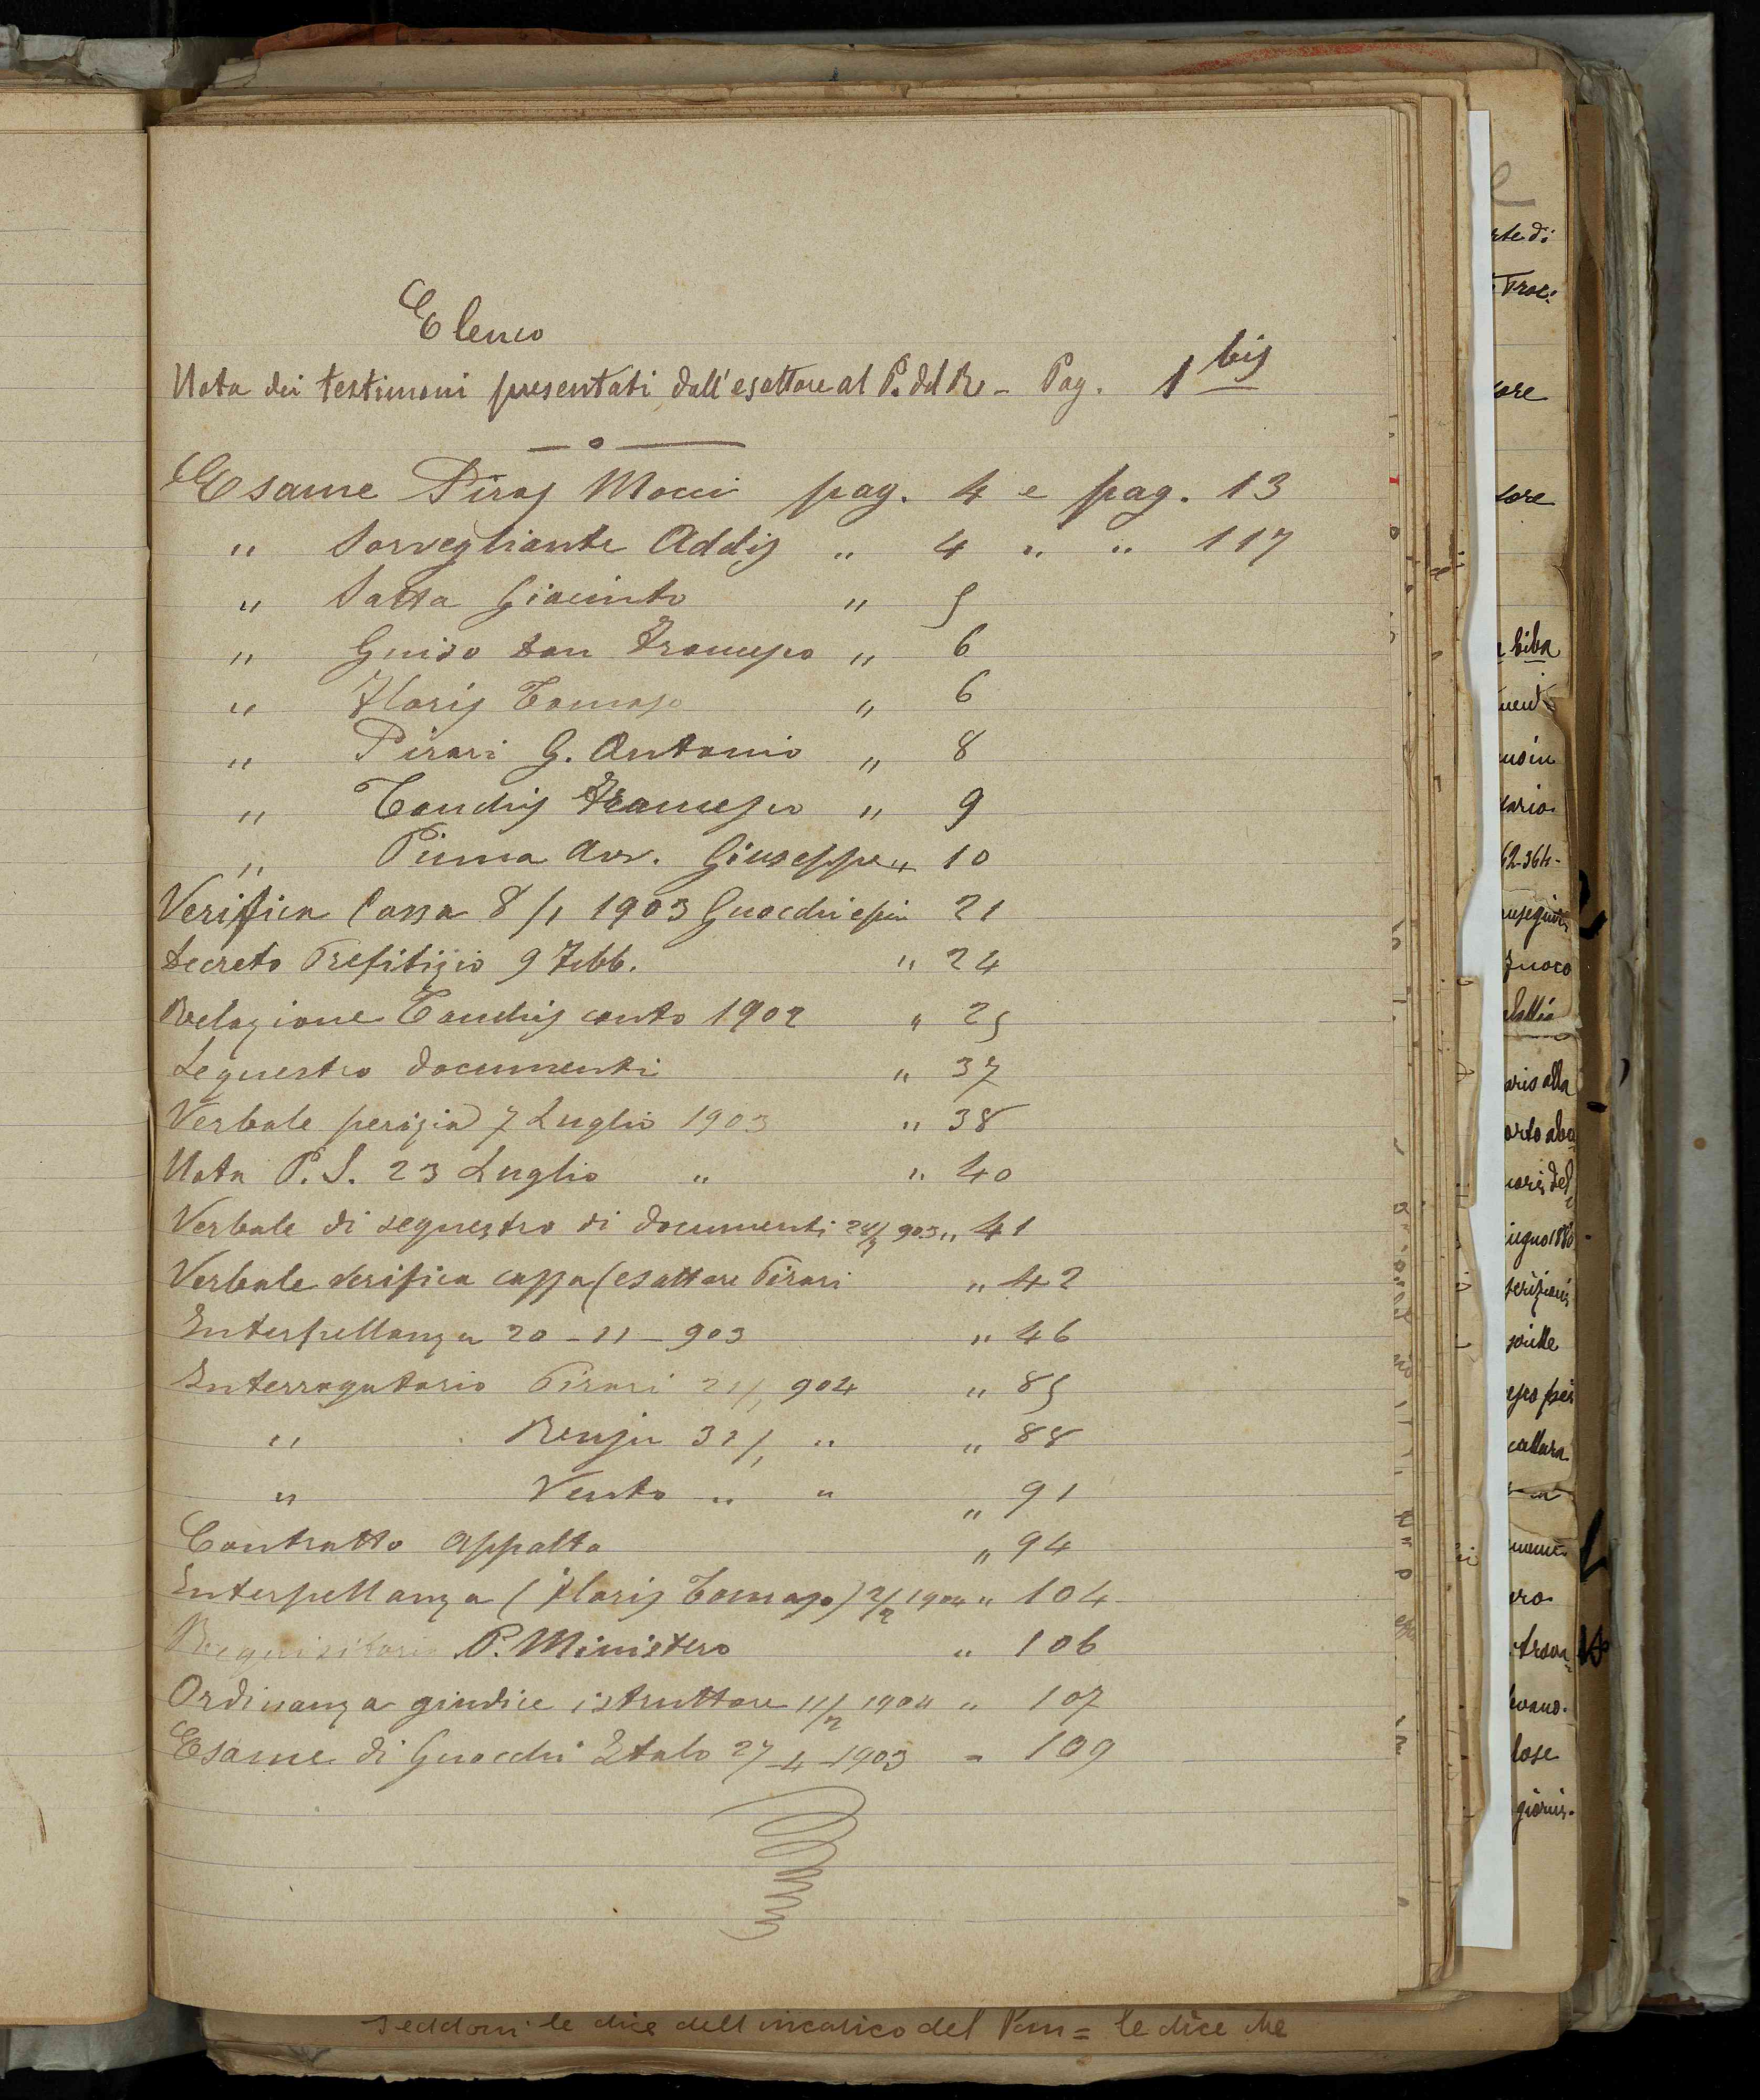 Elenco
Nota dei testimoni presentati dall'esattore al P. del Re - Pag. 1 bis
Esame Piras Mocci pag. 4 e pag. 13
" Sorvegliante Addis " 4 " " 117
" Satta Giacinto " 5
" Guiso Don Francesco " 6
" Floris Tomaso " 6
" Pirari G. Antonio " 8
" Tandis Francesco " 9
" Pinna Avv. Giuseppe " 10
Verifica Cassa 8/1 1903 Guocchi e 21
Decreto Prefitizio 9 Febb. " 24
Relazione Tandis conto 1902 " 25
Sequestro documenti " 37
Verbale perizia 7 Luglio 1903 " 38
Nota P. S. 23 Luglio " " 40
Verbale di sequestro di documenti 903 " 41
Verbale verifica cassa (esattore Pirari " 42
Interpellanza 20 - 11 - 903 " 46
Interrogatorio Pirari 21/1 904 " 85
" Benju 31/1 " " 88
" Vento " " " 91
Contratto Appalto " 94
Interpellanza (Floris Tomaso) 2/2 1904 " 104
Requisitoria P. Ministero " 106
Ordinanza giudice istruttore 11/2 1904 " 107
Esame di Guocchi Italo 27 - 4 - 1903 = 109
le dice dell'incarico del = le dice che
rte di
ore
tore
biba
tario
62-364-
fuoco
aris alla
scrizioni
lose
giorni-